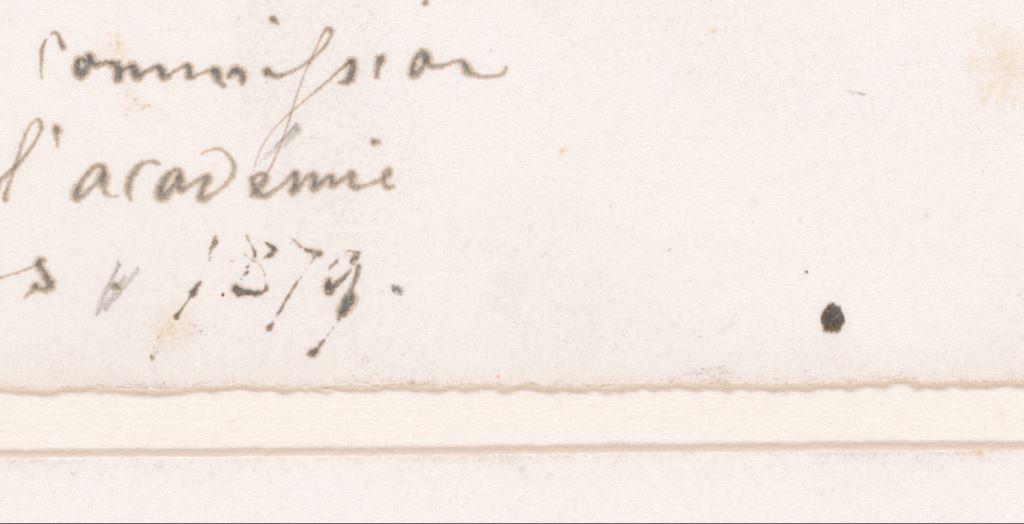 commission
l'académie
s 1879.